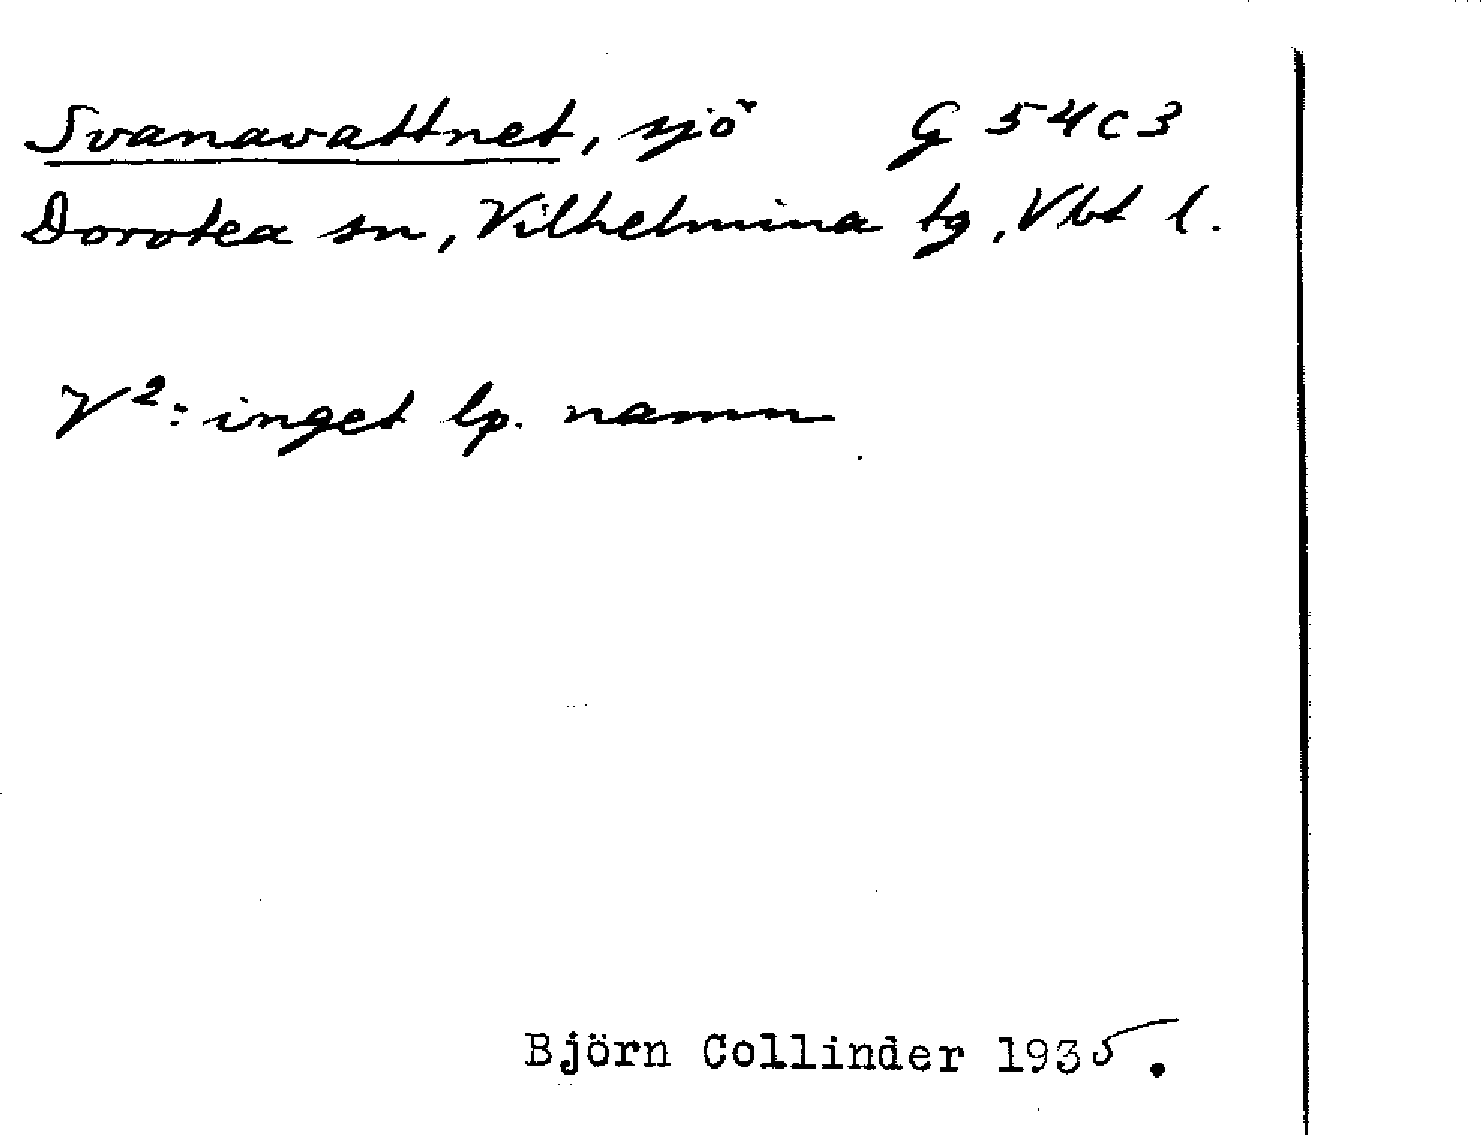 Svanavattnet, sjö G 54 c 3
Dorotea sn, Vilhelmina tg, Vbt l.
V²: inget lp. namn
Björn Collinder 1935.